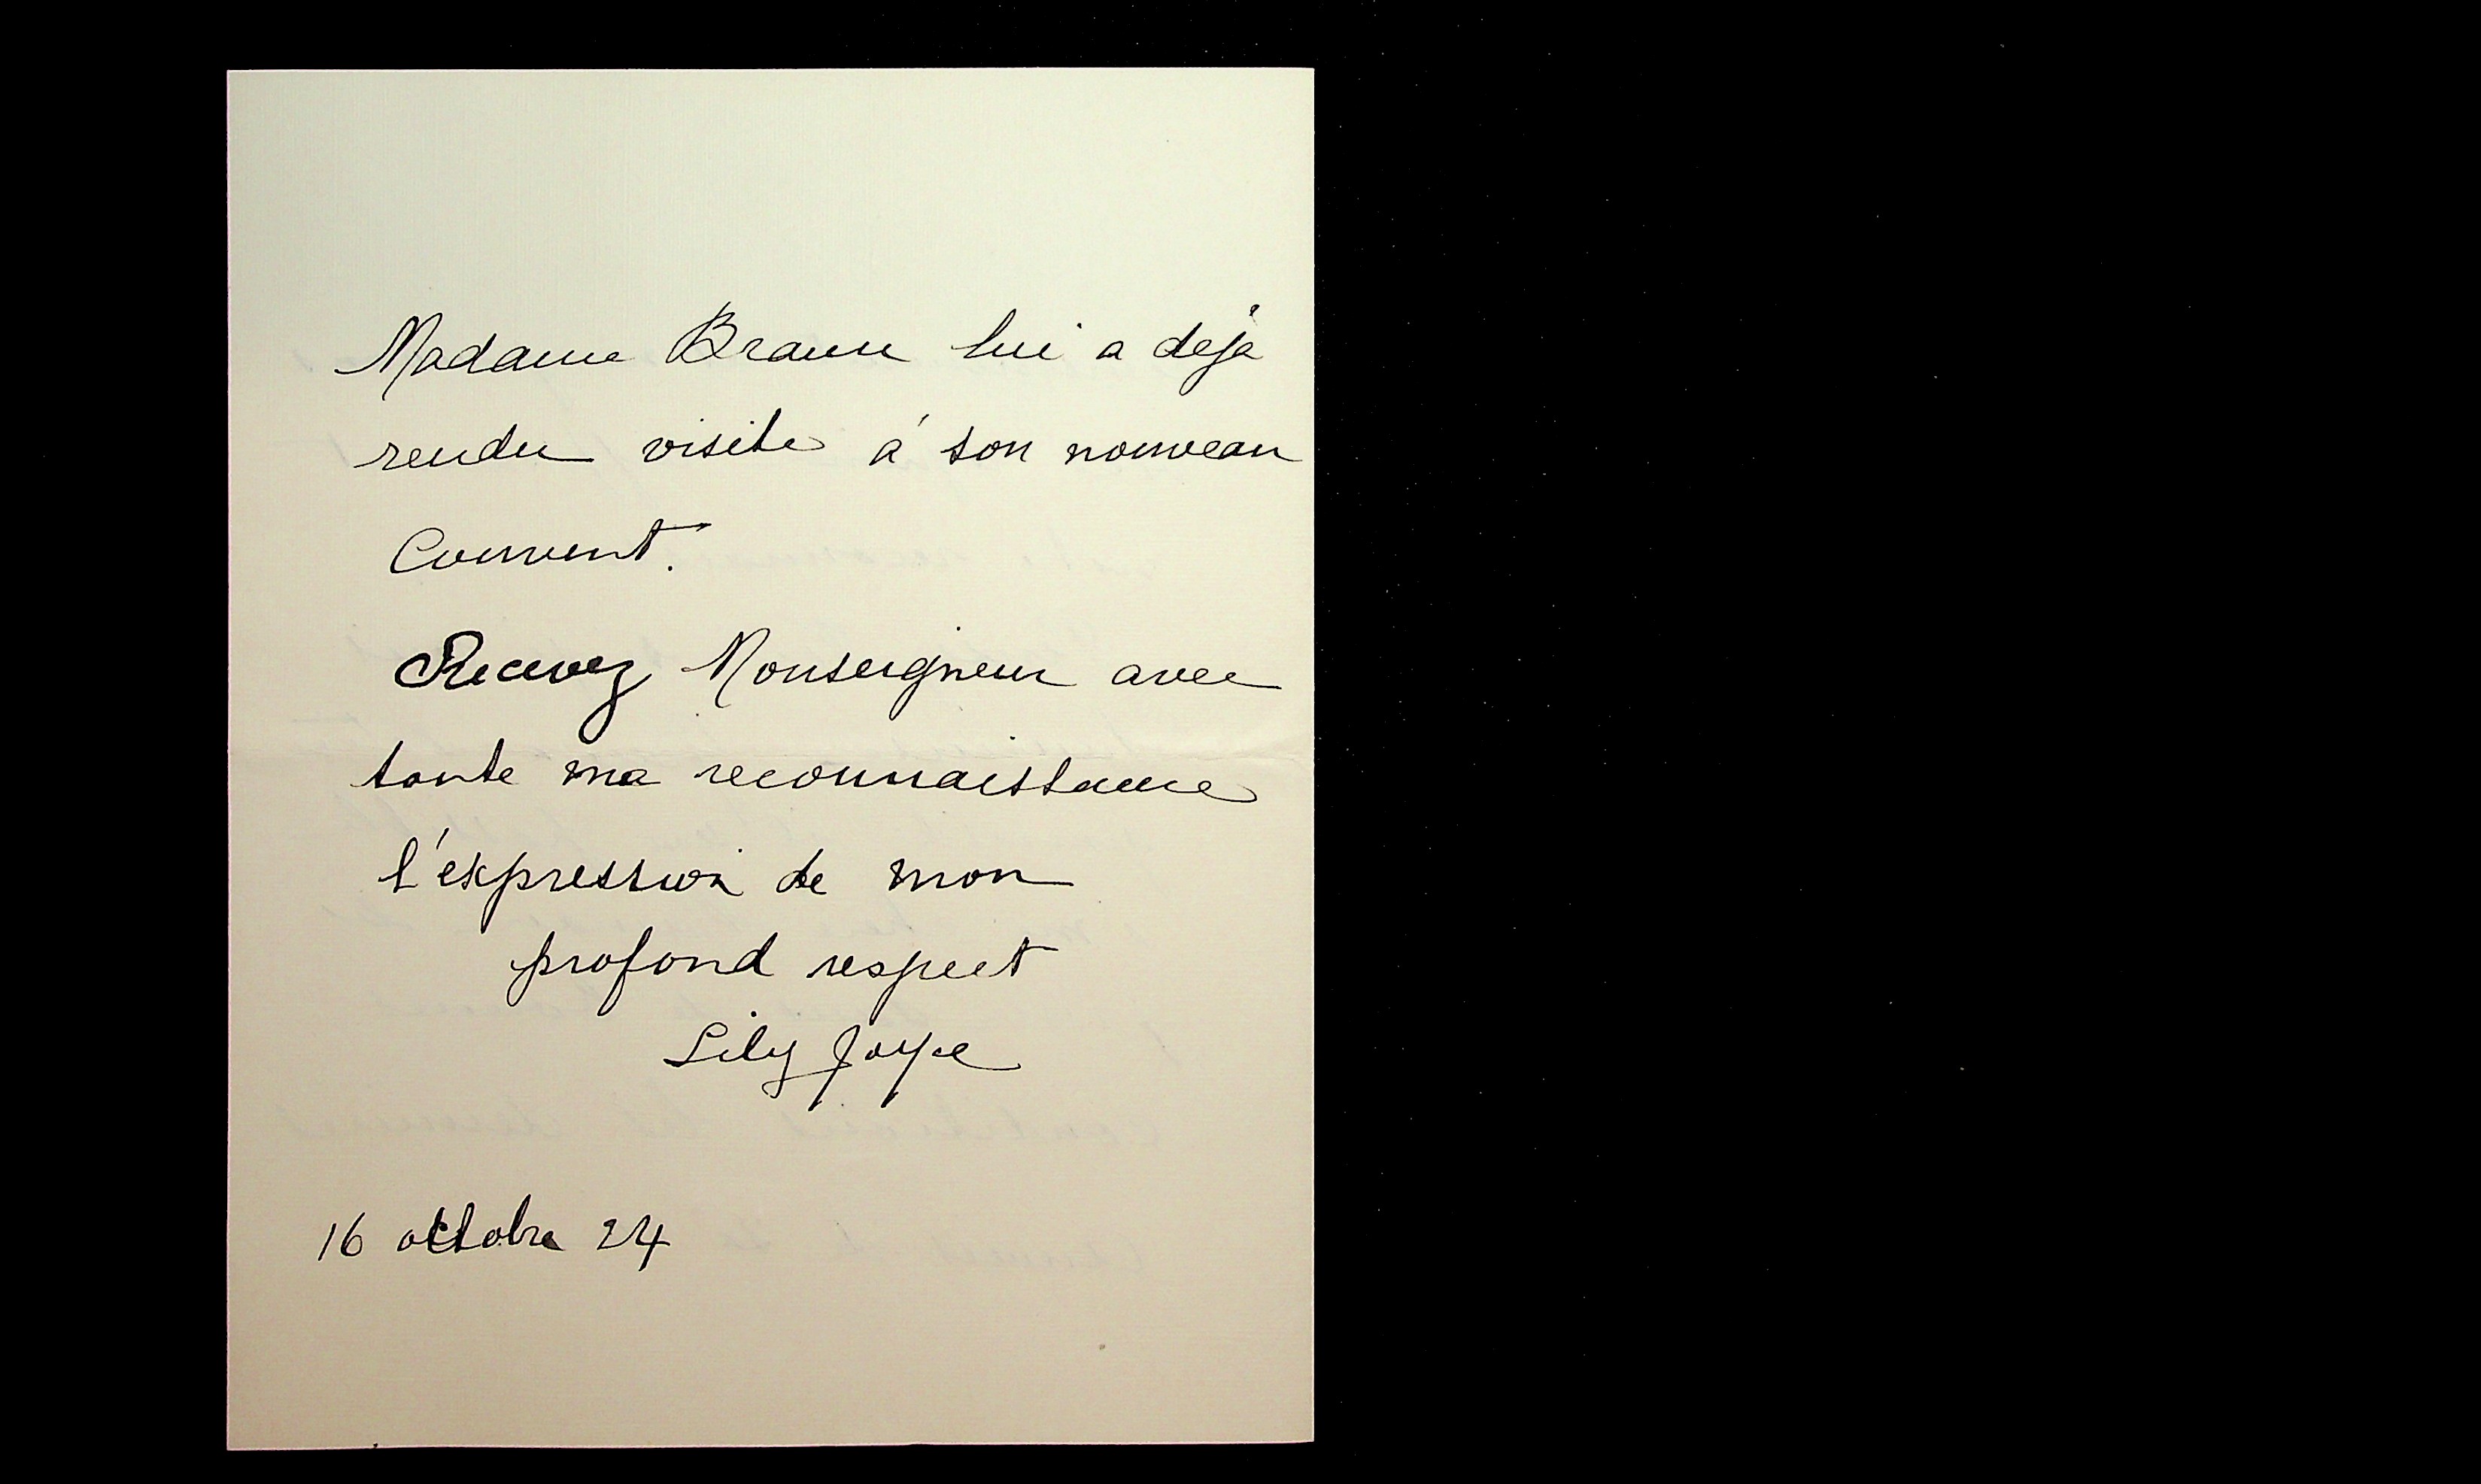 Madame Braun lui a déja
rendu visite à son nouveau
Couvent.
Recevez Monseigneur avec
toute ma reconnaissance
l'expression de mon
profond respect
Lily Joye
16 octobre 24